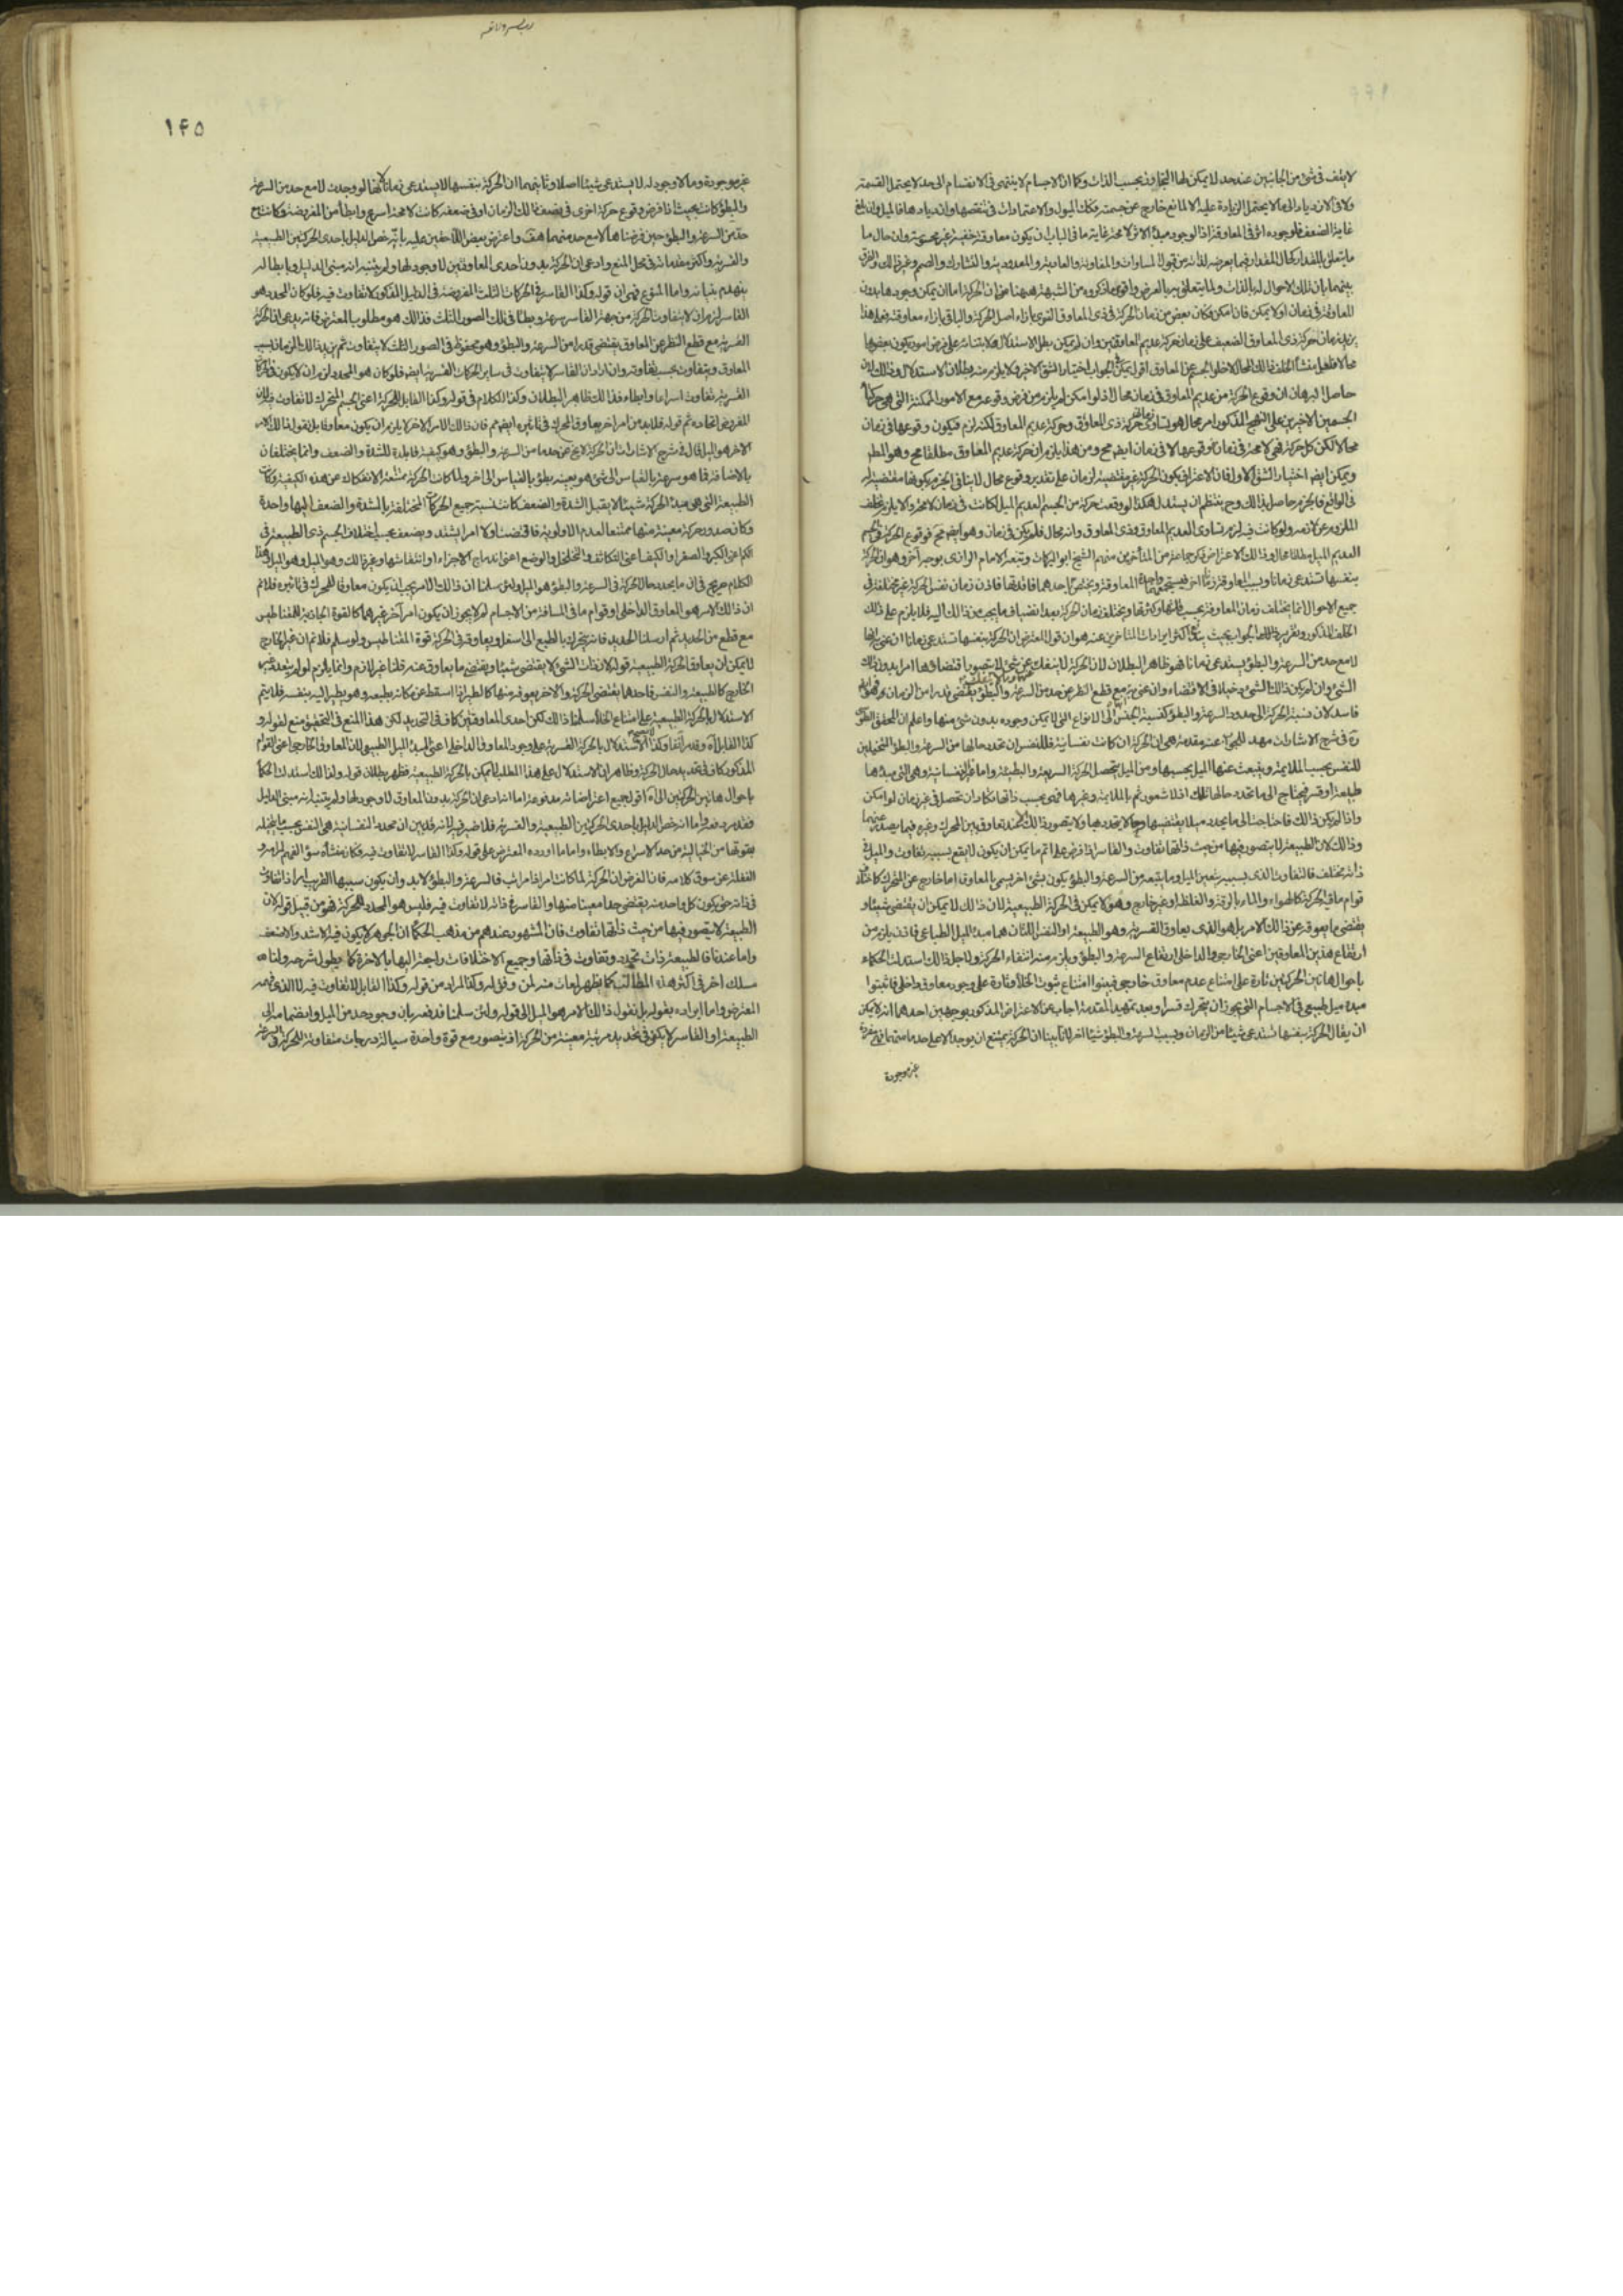 لا يقف فى شئ من الجانبين عند حد لا يمكن لها التجاوز بحسب الذات وكما ان الاجسام لا ينتهى فى الانقسام الى حد لا يحتمل القسمة
ولا فى الازدياد الى ما لا يحتمل الزيادة عليه الا لمانع خارج عن جسمته فكك الميول والاعتمادات فى تنقصها وازديادها فالميل وان بلغ
غاية الضعف فلوجوده اثر فى المعاوقة اذ لوجود مبدأ الاثر لا محة غاية ما فى الباب ان يكون معاوقة خفية غير محسوسة وان حال ما
يتعلق بالمقدار كحال المقدار فيما يعرضه لذاته من قبول المساوات والمفاوتة والعادية والمعدودية والتشارك والصمم وغير ذلك والفرق
بينهما بان تلك الاحوال له بالذات ولما يتعلق به بالعرض واقوى ما ذكروه من الشبهة ههنا هو ان الحركة اما ان يمكن وجودها بدون
المعاوقة فى زمان او لا يمكن فان امكن فكان بعض من زمان الحركة فى ذى المعاوق القوى بازاء اصل الحركة والباقى بازاء معاوقته فعلى هذا
يزيد زمان حركة ذى المعاوق الضعيف على زمان حركة عديم المعاوق وان لم يمكن بطل الاستدلال لابتنائه على فرض امور يكون بعضها
محالا فلعل منشأ الخلف ذلك المحال لا خلو الجسم عن المعاوق اقول يمكن فى الجواب اختيار الشق الاخير ولا يلزم منه بطلان الاستدلال وذلك لان
حاصل البرهان ان وقوع الحركة من عديم المعاوق فى زمان محال اذ لو امكن لم يلزم من فرض وقوعه مع الامور الممكنة التى هى حركتا
الجسمين الاخيرين على النهج المذكور امر محال هو تساوى زمانى حركة ذى المعاوق وحركة عديم المعاوق لكنه لزم فيكون وقوعها فى زمان
محالا لكن كل حركة فهى لا محة فى زمان فوقوعها لا فى زمان ايضا مح ومن هذا يلزم ان حركة عديم المعاوق مطلقا مح وهو المط
ويمكن ايضا اختيار الشق الاول فان الاعتراف بكون الحركة غير مقتضية لزمان على تقدير وقوع محال لا ينافى الجزم بكونها مقتضية له
فى الواقع فالجزم حاصل بذلك وح ينتظم ان يستدل هكذا لو وقعت حركة من الجسم العديم الميل لكانت فى زمان لا محة والا يلزم تخلف
الملزوم عن لازمه ولو كانت فيه لزم تساوى العديم المعاوق وذى المعاوق وانه محال فلم يكن فى زمان وهو ايضا مح فوقوع الحركة فى الجسم
العديم الميل مطلقا محال وذلك الاعتراض ذكره جماعة من المتأخرين منهم الشيخ ابو البركات وتبعه الامام الرازى بوجه آخر وهو ان الحركة
بنفسها تستدعى زمانا وبسبب المعاوقة زمانا آخر فيستجمعهما واجدة المعاوقة ويختص باحدهما فاقدتها فاذن زمان نفس الحركة غير مختلفة فى
جميع الاحوال انما يختلف زمان المعاوقة بحسب قلتها وكثرتها ويختلف زمان الحركة بعد انضياف ما يجب من ذلك اليه فلا يلزم على ذلك
الخلف المذكور وتقرير ذلك الجواب بحيث يندفع اكثر ايرادات المتأخرين عنه هو ان قول المعترض ان الحركة بنفسها تستدعى زمانا ان عنى به انها
لا مع حد من السرعة والبطؤ يستدعى زمانا فهو ظاهر البطلان لان الحركة لا ينفك عن شئ لا يتصور اقتضاؤها امرا بدون ذلك
الشئ وان لم يكن ذلك الشئ دخيلا فى الاقتضاء وان عنى به مع قطع النظر عن حد من السرعة والبطؤ يقتضى قدرا من الزمان فهو ايضا
فاسد لان نسبة الحركة الى حدود السرعة والبطؤ كنسبة الجنس الى الانواع التى لا يمكن وجوده بدون شئ منها واعلم ان المحقق الطوسى
ره فى شرح الاشارات مهد للجواب عنه مقدمة هى ان الحركة ان كانت نفسانية فللنفس ان تحدد حالها من السرعة والبطؤ المتخيلين
للنفس بحسب الملايمة وينبعث عنها الميل بحسبها ومن الميل يتحصل الحركة السريعة والبطيئة واما غير النفسانية وهى التى مبدؤها
طبيعة او قسر فيحتاج الى ما تحدد حالها تلك اذ لا شعور ثم بالملايمة وغيرها فهى بحسب ذاتها تكاد ان تحصل فى غير زمان لو امكن
واذا لم يكن ذلك فاحتاجت الى ما يحدد ميلا يقتضيها وحالا يتحدد بها ولا يتصور ذلك الا عند تعاوق بين المحرك وغيره فيما يصدر عنهما
وذلك لان الطبيعة لا يتصور فيها من حيث ذاتها تفاوت والقاسر اذا فرض على اتم ما يمكن ان يكون لا يقع بسببه تفاوت والميل فى
ذاته مختلف فالتفاوت الذى بسببه يتعين الميل وما يتبعه من السرعة والبطؤ يكون بشئ آخر يسمى بالمعاوق اما خارج عن المتحرك كاختلاف
قوام ما فيه الحركة كالهواء والماء بالرقة والغلظ او غير خارج وهو لا يمكن فى الحركة الطبيعية لان ذلك لا يمكن ان يقتضى شيئا و
يقتضى ما يعوقه عن ذلك الامر بل هو الذى يعاوق القسرية وهو الطبيعة او النفس اللتان هما مبدأ الميل الطباعى فاذن يلزم من
ارتفاع هذين المعاوقين اعنى الخارجى والداخلى ارتفاع السرعة والبطؤ ويلزم منه انتفاء الحركة ولاجل ذلك استدلت الحكماء
باحوال هاتين الحركتين تارة على امتناع عدم معاوق خارجى فبينوا امتناع ثبوت الخلأ وتارة على وجود معاوق داخلى فاثبتوا
مبدء ميل طبيعى فى الاجسام التى يجوز ان يتحرك قسرا وبعد تمهيد المقدمة اجاب عن الاعتراض المذكور بوجهين احدهما انه لا يمكن
ان يقال الحركة بنفسها تستدعى شيئا من الزمان وبسبب السرعة والبطؤ شيئا آخر لانا بينا ان الحركة يمتنع ان يوجد الا على حد ما منهما فهى مفردة
غير موجودة
١٤٥
غير موجودة وما لا وجود له لا يستدعى شيئا اصلا وثانيهما ان الحركة بنفسها لا يستدعى زمانا لانها لو وجدت لا مع حد من السرعة
والبطؤ كانت بحيث اذا فرض وقوع حركة اخرى فى نصف ذلك الزمان او فى ضعفه كانت لا محة اسرع وابطأ من المفروضة وكانت مع
حد من السرعة والبطؤ حين فرضناها لا مع حد منهما هف واعترض بعض اللاحقين عليه بانه خص الدليل باحدى الحركتين الطبيعية
والقسرية واكثر مقدماته فى محل المنع وادعى ان الحركة بدون احدى المعاوقين لا وجود لها ولم يتنبه انه مبنى الدليل وبابطاله
ينهدم بنيانه واما المنوع فهى ان قوله وكذا القاسر فى الحركات الثلث المفروضة فى الدليل المذكور لا تفاوت فيه فلو كان المحدد هو
القاسر لزم ان لا يتفاوت الحركة من جهة القاسر سرعة وبطئا فى تلك الصور الثلث فذلك هو مطلوب المعترض فانه يدعى ان الحركة
القسرية مع قطع النظر عن المعاوق يقتضى قدرا من السرعة والبطؤ وهو محفوظ فى الصور الثلث لا يتفاوت ثم يزيد ذلك الزمان بسبب
المعاوق ويتفاوت بحسب تفاوته وان اراد ان القاسر لا يتفاوت فى ساير الحركات القسرية ايضا فلو كان هو المحدد لزم ان لا يكون فى الحركات
القسرية تفاوت اسراعا وابطاء فذلك ظاهر البطلان وكذا الكلام فى قوله وكذا القابل للحركة اعنى الجسم المتحرك لا تفاوت فيه لان
المفروض اتحاده ثم قوله فلا بد من امر آخر يعاوق المحرك فى تاثيره ايضا مم فان ذلك الامر الاخر لا يلزم ان يكون معاوقا بل نقول ذلك الامر
الاخر هو الميل قال فى شرح الاشارات ان الحركة لا يخ عن حد ما من السرعة والبطؤ وهو كيفية قابلة للشدة والضعف وانما يختلفان
بالاضافة فما هو سرعة بالقياس الى شئ هو بعينه بطؤ بالقياس الى آخر ولما كانت الحركة ممتنعة الانفكاك عن هذه الكيفية وكانت
الطبيعة التى هى مبدأ الحركة شيئا لا يقبل الشدة والضعف كانت نسبة جميع الحركات المختلفة بالشدة والضعف اليها واحدة
وكان صدور حركة معينة منها ممتنعا لعدم الاولوية فاقتضت اولا امرا يشتد ويضعف بحسب اختلاف الجسم ذى الطبيعة فى
الكم اعنى الكبر والصغر او الكيف اعنى التكاثف والتخلخل او الوضع اعنى اندماج الاجزاء او انتفاشها وغير ذلك وهو الميل وهو الميل وهذا
الكلام صريح فى ان ما يحدد حال الحركة فى السرعة والبطؤ هو الميل ولئن سلمنا ان ذلك الامر يجب ان يكون معاوقا للمحرك فى تاثيره فلا نم
ان ذلك الامر هو المعاوق الداخلى او قوام ما فى المسافة من الاجسام لم لا يجوز ان يكون امرا آخر غيرهما كالقوة الجاذبة للمغناطيس
مع قطع من الحديد ثم ارسلنا الحديد فانه يتحرك بالطبع الى اسفل ويعاوقه فى الحركة قوة المغناطيس ولو سلم فلا نم ان غير الخارج
لا يمكن ان يعاوق الحركة الطبيعية قوله لان ذات الشئ لا يقتضى شيئا ويقتضى ما يعاوق عنه قلنا غير لازم وانما يلزم لو لم يتعدد غير
الخارج كالطبيعة والنفس فاحدهما يقتضى الحركة والآخر يعوقه منها كالطير اذا اسقط عن مكانه بطبعه وهو يطير اليه بنفسه فلا يتم
الاستدلال بالحركة الطبيعية على امتناع الخلأ سلمنا ذلك لكن احدى المعاوقتين كاف فى التحديد لكن هذا المنع فى التحقيق منع لقوله و
كذا القابل آه وقد مر آنفا وكذا لا استدلال بالحركة القسرية على وجود المعاوق الداخلى اعنى المبدأ الميل الطبيعى لان المعاوق الخارجى اعنى القوام
المذكور كاف فى تحديد حال الحركة وظاهر ان الاستدلال على هذا المطلب لا يمكن بالحركة الطبيعية فظهر بطلان قوله ولذلك استدلت الحكماء
باحوال هاتين الحركتين الى آه اقول جميع اعتراضاته مدفوعة اما انه ادعى ان الحركة بدون المعاوق لا وجود لها ولم يتنبه انه مبنى الدليل
فقد مر دفعه واما انه خص الدليل باحدى الحركتين الطبيعية والقسرية فلا ضير فيه لانه قد بين ان محدد النفسانية هى النفس بحسب ما يتخيله
بقوتها من الخيالية من حد الاسراع والابطاء واما ما اورده المعترض على قوله وكذا القاسر لا تفاوت فيه فكان منشأه سوء الفهم لمرامه و
الغفلة عن سوق كلامه فان الغرض ان الحركة لما كانت امرا ذا مراتب فالسرعة والبطؤ لا بد وان يكون سببها القريب امرا ذا تفاوت
فى ذاته حتى يكون كل واحد منه يقتضى حدا معينا منها والقاسر فى ذاته لا تفاوت فيه فليس هو المحدد للحركة فهو من قبيل قوله لان
الطبيعة لا يتصور فيها من حيث ذاتها تفاوت فان المشهور عندهم من مذهب الحكماء ان الجوهر لا يكون فيه الاشد والاضعف
واما عندنا فالطبيعة ذات تجدد وتفاوت فى ذاتها وجميع الاختلافات راجعة اليها بالاخرة كما يطول شرحه ولنا
مسلك آخر فى اكثر هذه المطالب كما يظهر لمعات منه لمن وفق له وكذا المراد من قوله وكذا القابل لا تفاوت فيه لا الذى فهمه
المعترض واما ايراده بقوله بل نقول ذلك الامر هو الميل الى قوله ولئن سلمنا فدفعه بان وجود حد من الميل وانضمامه الى
الطبيعة او القاسر لا يكفى فى تحديد مرتبة معينة من الحركة اذ يتصور مع قوة واحدة سيالة درجات متفاوتة للحركة فى السرعة